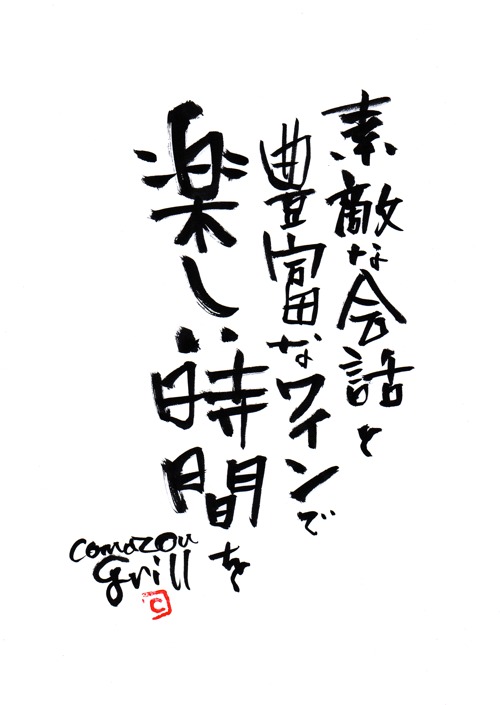 素敵な会話と
豊富なワインで
楽しい時間を
comazou
grill
C